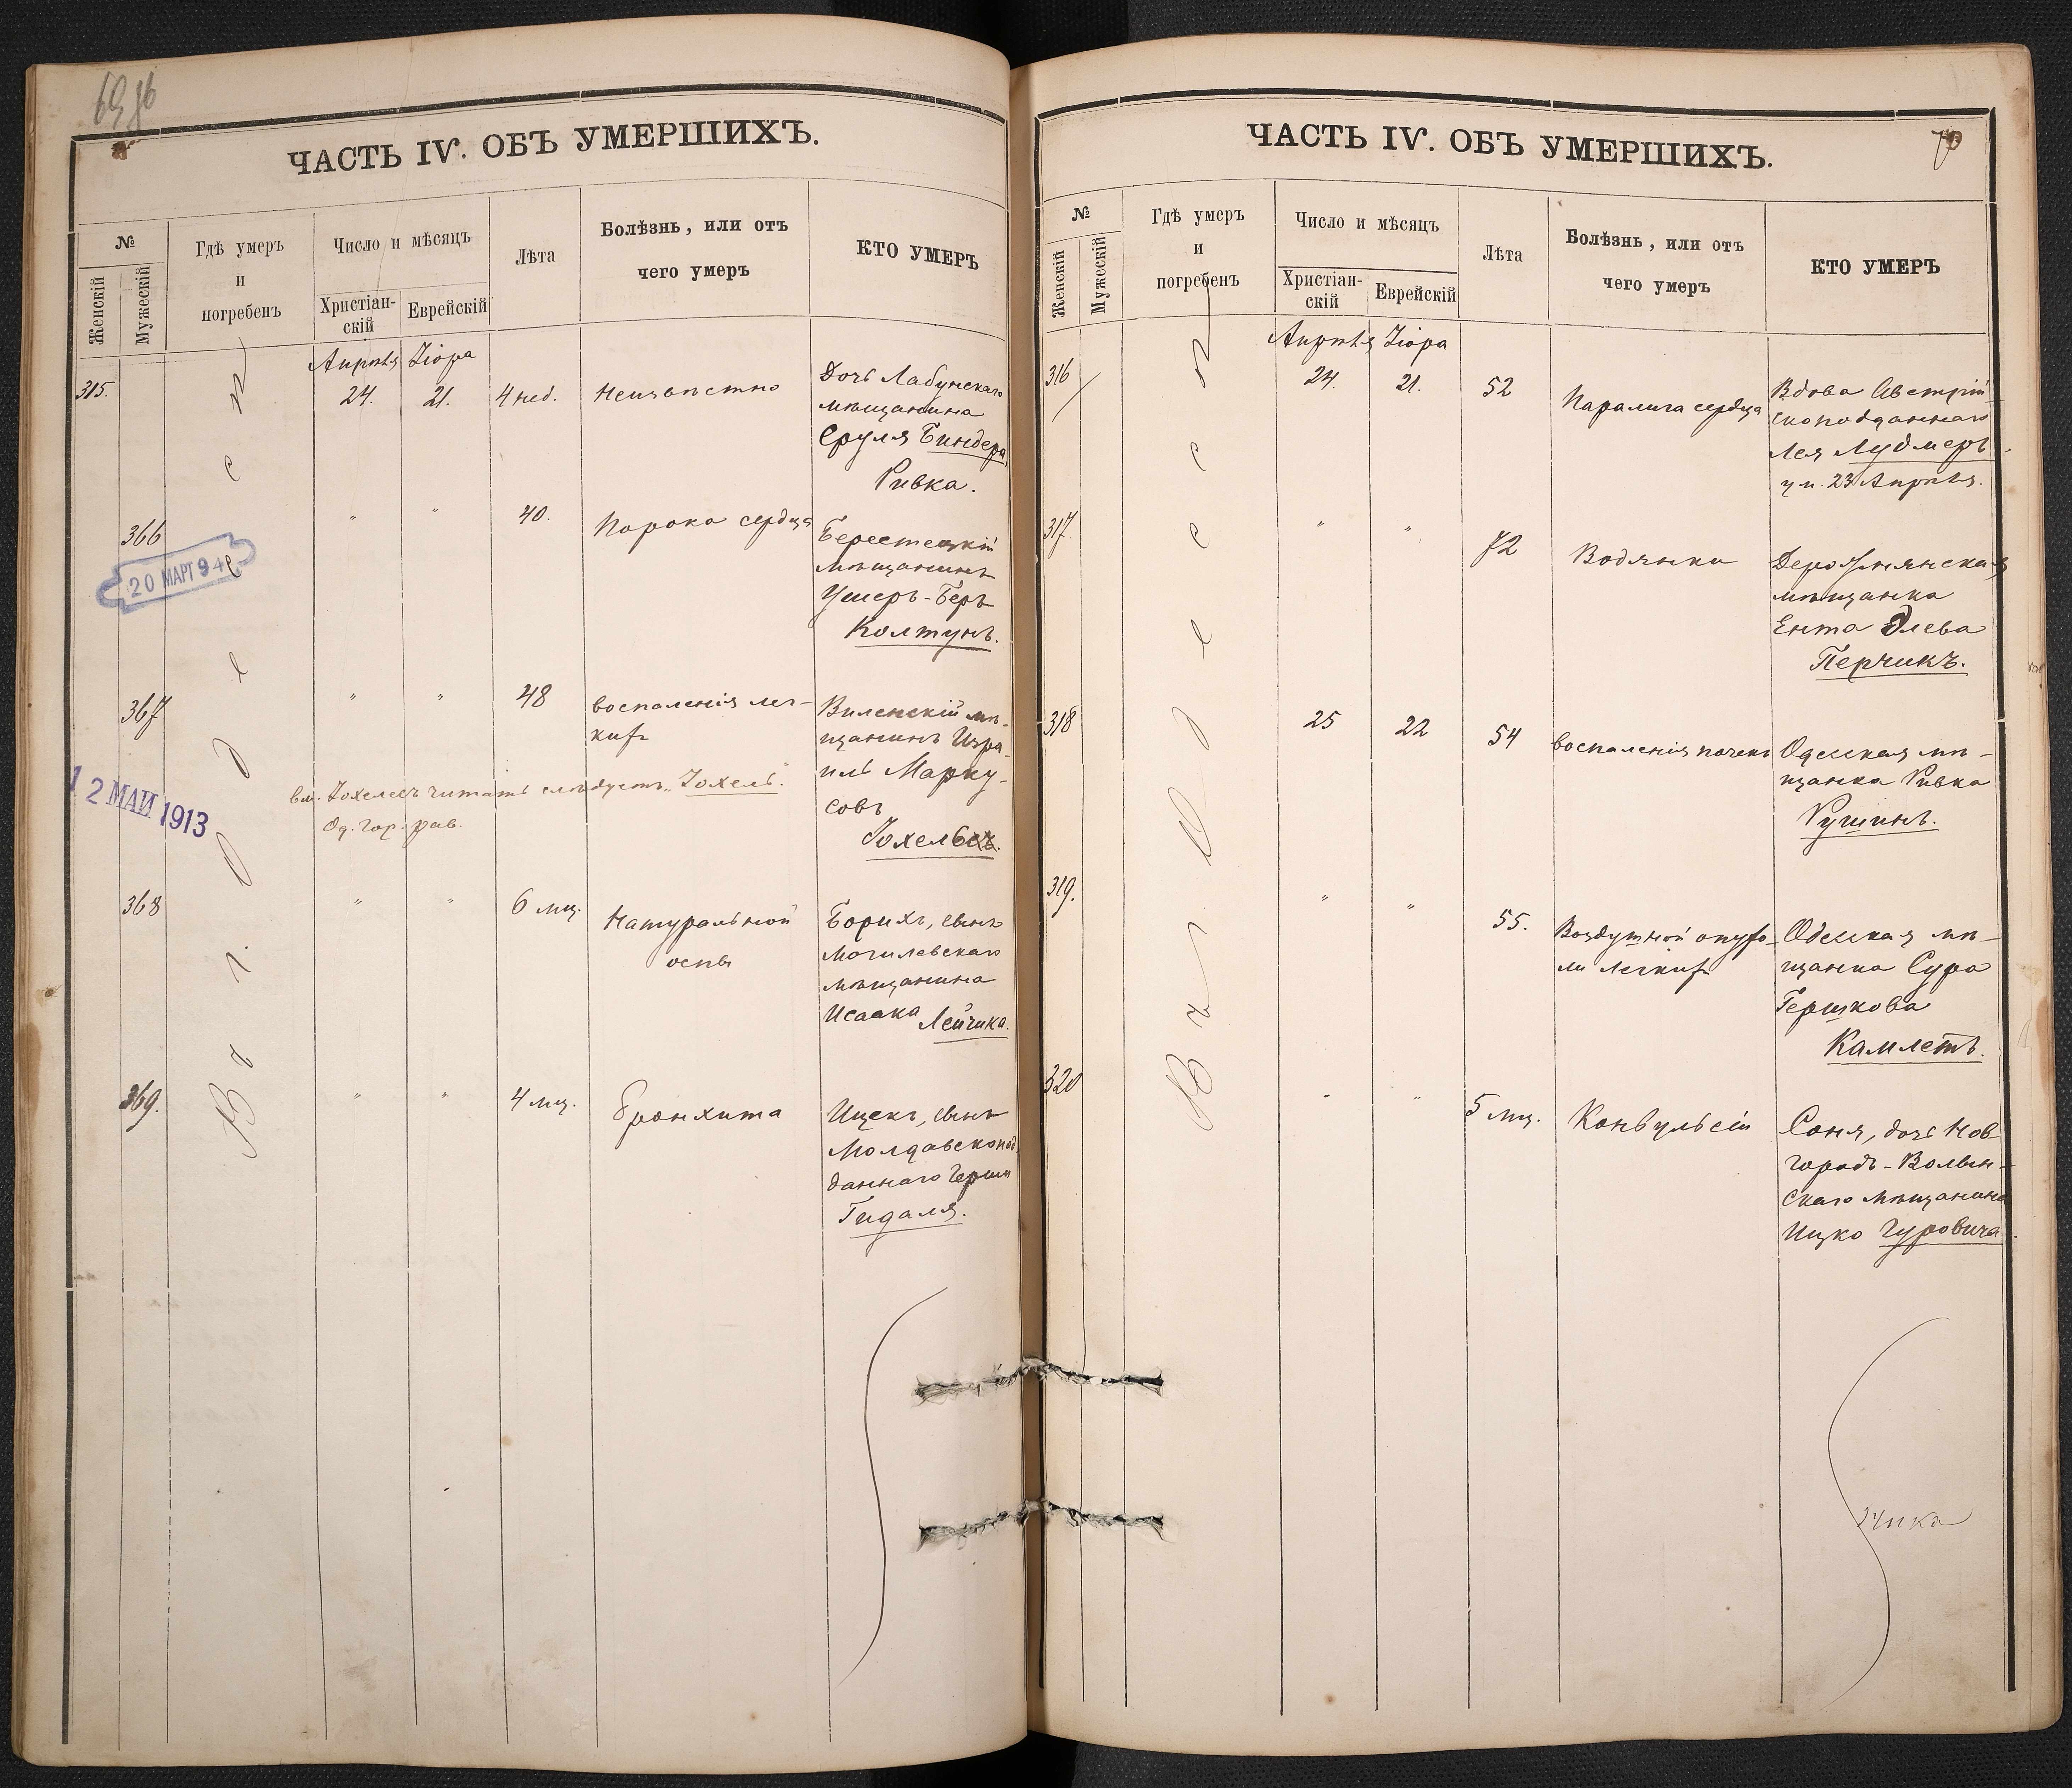 69 об
ЧАСТЬ IV. ОБЪ УМЕРШИХЪ.
№
Женскій
Мужескій
Гдѣ умеръ
и
погребенъ
Число и мѣсяцъ
Христіан-
скій
Еврейскій
Лѣта
Болѣзнь, или отъ
чего умеръ
КТО УМЕРЪ
Въ г. Одессѣ
Апрѣля Ііора
315. 24. 21. 4 нед. Неизвѣстно
Дочь Лабунскаго
мѣщанина
Сруля Биндера,
Ривка.
366 " " 40. Порока сердца
Берестецкій
мѣщанинъ
Ушеръ-Беръ
Колтунъ.
20 МАРТ 94
367 " " 48 воспаленія лег-
кихъ
Виленскій мѣ-
щанинъ Изра-
иль Марку-
совъ
Іохельсъ.
12 МАЙ 1913
вм. Іохелесъ читать слѣдуетъ „Іохель".
Од. Гор. рав.
368 " " 6 мц. Натуральной
оспы
Борихъ, сынъ
могилевскаго
мѣщанина
Исаака Лейчика.
369. " " 4 мц. бронхита
Ицекъ, сынъ
Молдавскопод
даннаго Герши
Гидаля.
70
ЧАСТЬ IV. ОБЪ УМЕРШИХЪ.
№
Женскій
Мужескій
Гдѣ умеръ
и
погребенъ
Число и мѣсяцъ
Христіан-
скій
Еврейскій
Лѣта
Болѣзнь, или отъ
чего умеръ
КТО УМЕРЪ
Въ г. Одессѣ
Апрѣля Ііора
316 24. 21. 52 Паралича сердца
Вдова Австрій-
скоподданнаго
Лея Лудмеръ
ум. 23 Апрѣля.
317. " " 72 Водянки
Деражнянская
мѣщанка
Ента Элева
Перчикъ.
318 25 22 54 воспаленія почекъ
Одесская мѣ-
щанка Ривка
Рушинъ.
319. " " 55. Воздушной опухо-
ли легкихъ
Одесская мѣ-
щанка Сура
Гершкова
Камлетъ.
320 " " 5 мц. Конвульсіи
Соня, дочь Нов
городъ-Волын-
скаго мѣщанина
Ицко Гуровича.